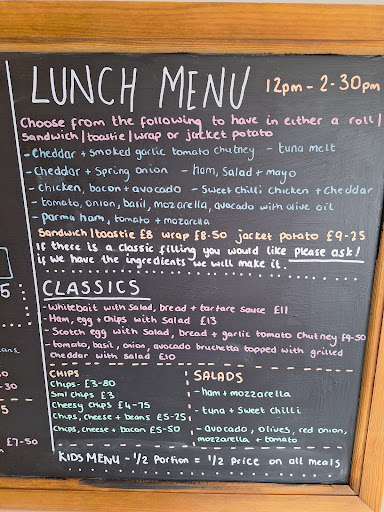 LUNCH MENU 12pm - 2-30pm
Choose from the following to have in either a roll/
Sandwich/toastie/wrap or jacket potato
- Cheddar + smoked garlic tomato chutney - tuna melt
- Cheddar + Spring onion - ham, Salad + mayo
- Chicken, bacon + avocado - Sweet chilli chicken + cheddar
- tomato, onion, basil, mozarella, avocado with olive oil
- parma ham, tomato + mozarella
Sandwich/toastie £8 wrap £8.50 jacket potato £9-25
If there is a classic filling you would like please ask!
if we have the ingredients we will make it.
CLASSICS
- Whitebait with Salad, bread + tartare sauce £11
- Ham, egg + chips with Salad £13
- Scotch egg with Salad, bread + garlic tomato Chutney £9-50
- tomato, basil, onion, avocado bruchetta topped with grilled
Cheddar with Salad £10
CHIPS
Chips - £3-80
Sml chips £3
Cheesy Chips £4-75
Chips, cheese + beans £5-25
Chips, cheese + bacon £5-50
SALADS
- ham + mozzarella
- tuna + Sweet Chilli
- Avocado, olives, red onion,
mozzarella + tomato
KIDS MENU - 1/2 Portion = 1/2 Price on all meals
5
50
-30
5
£7-50